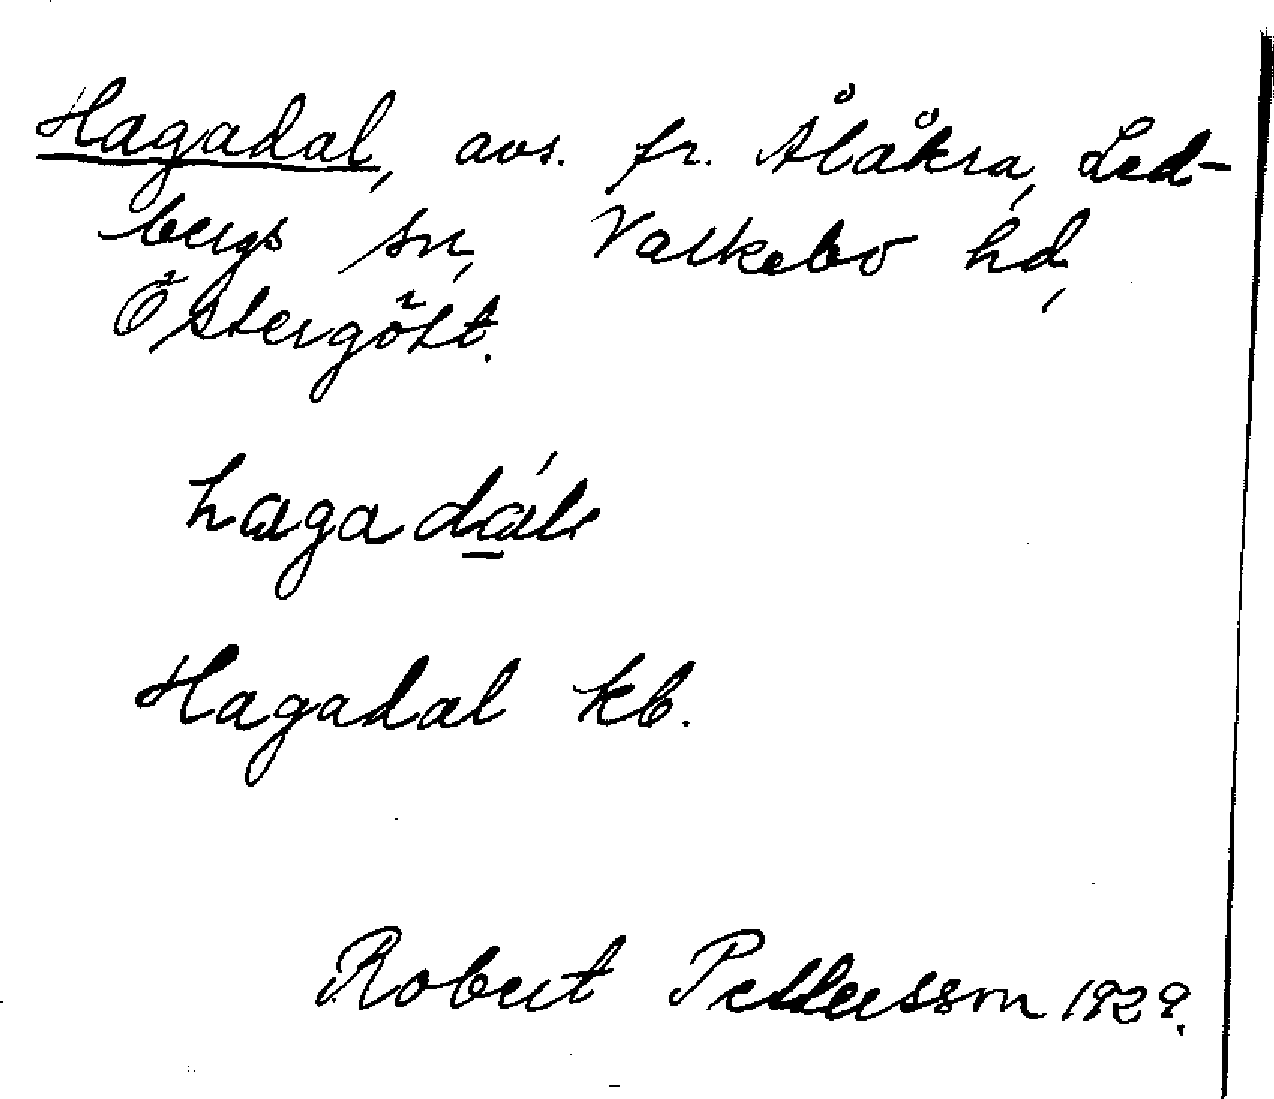 Hagadal, avs. fr. Ålåkra, Led-
bergs sn, Valkebo hd,
Östergötl.
hagadál
Hagadal kb.
Robert Pettersson 1929.